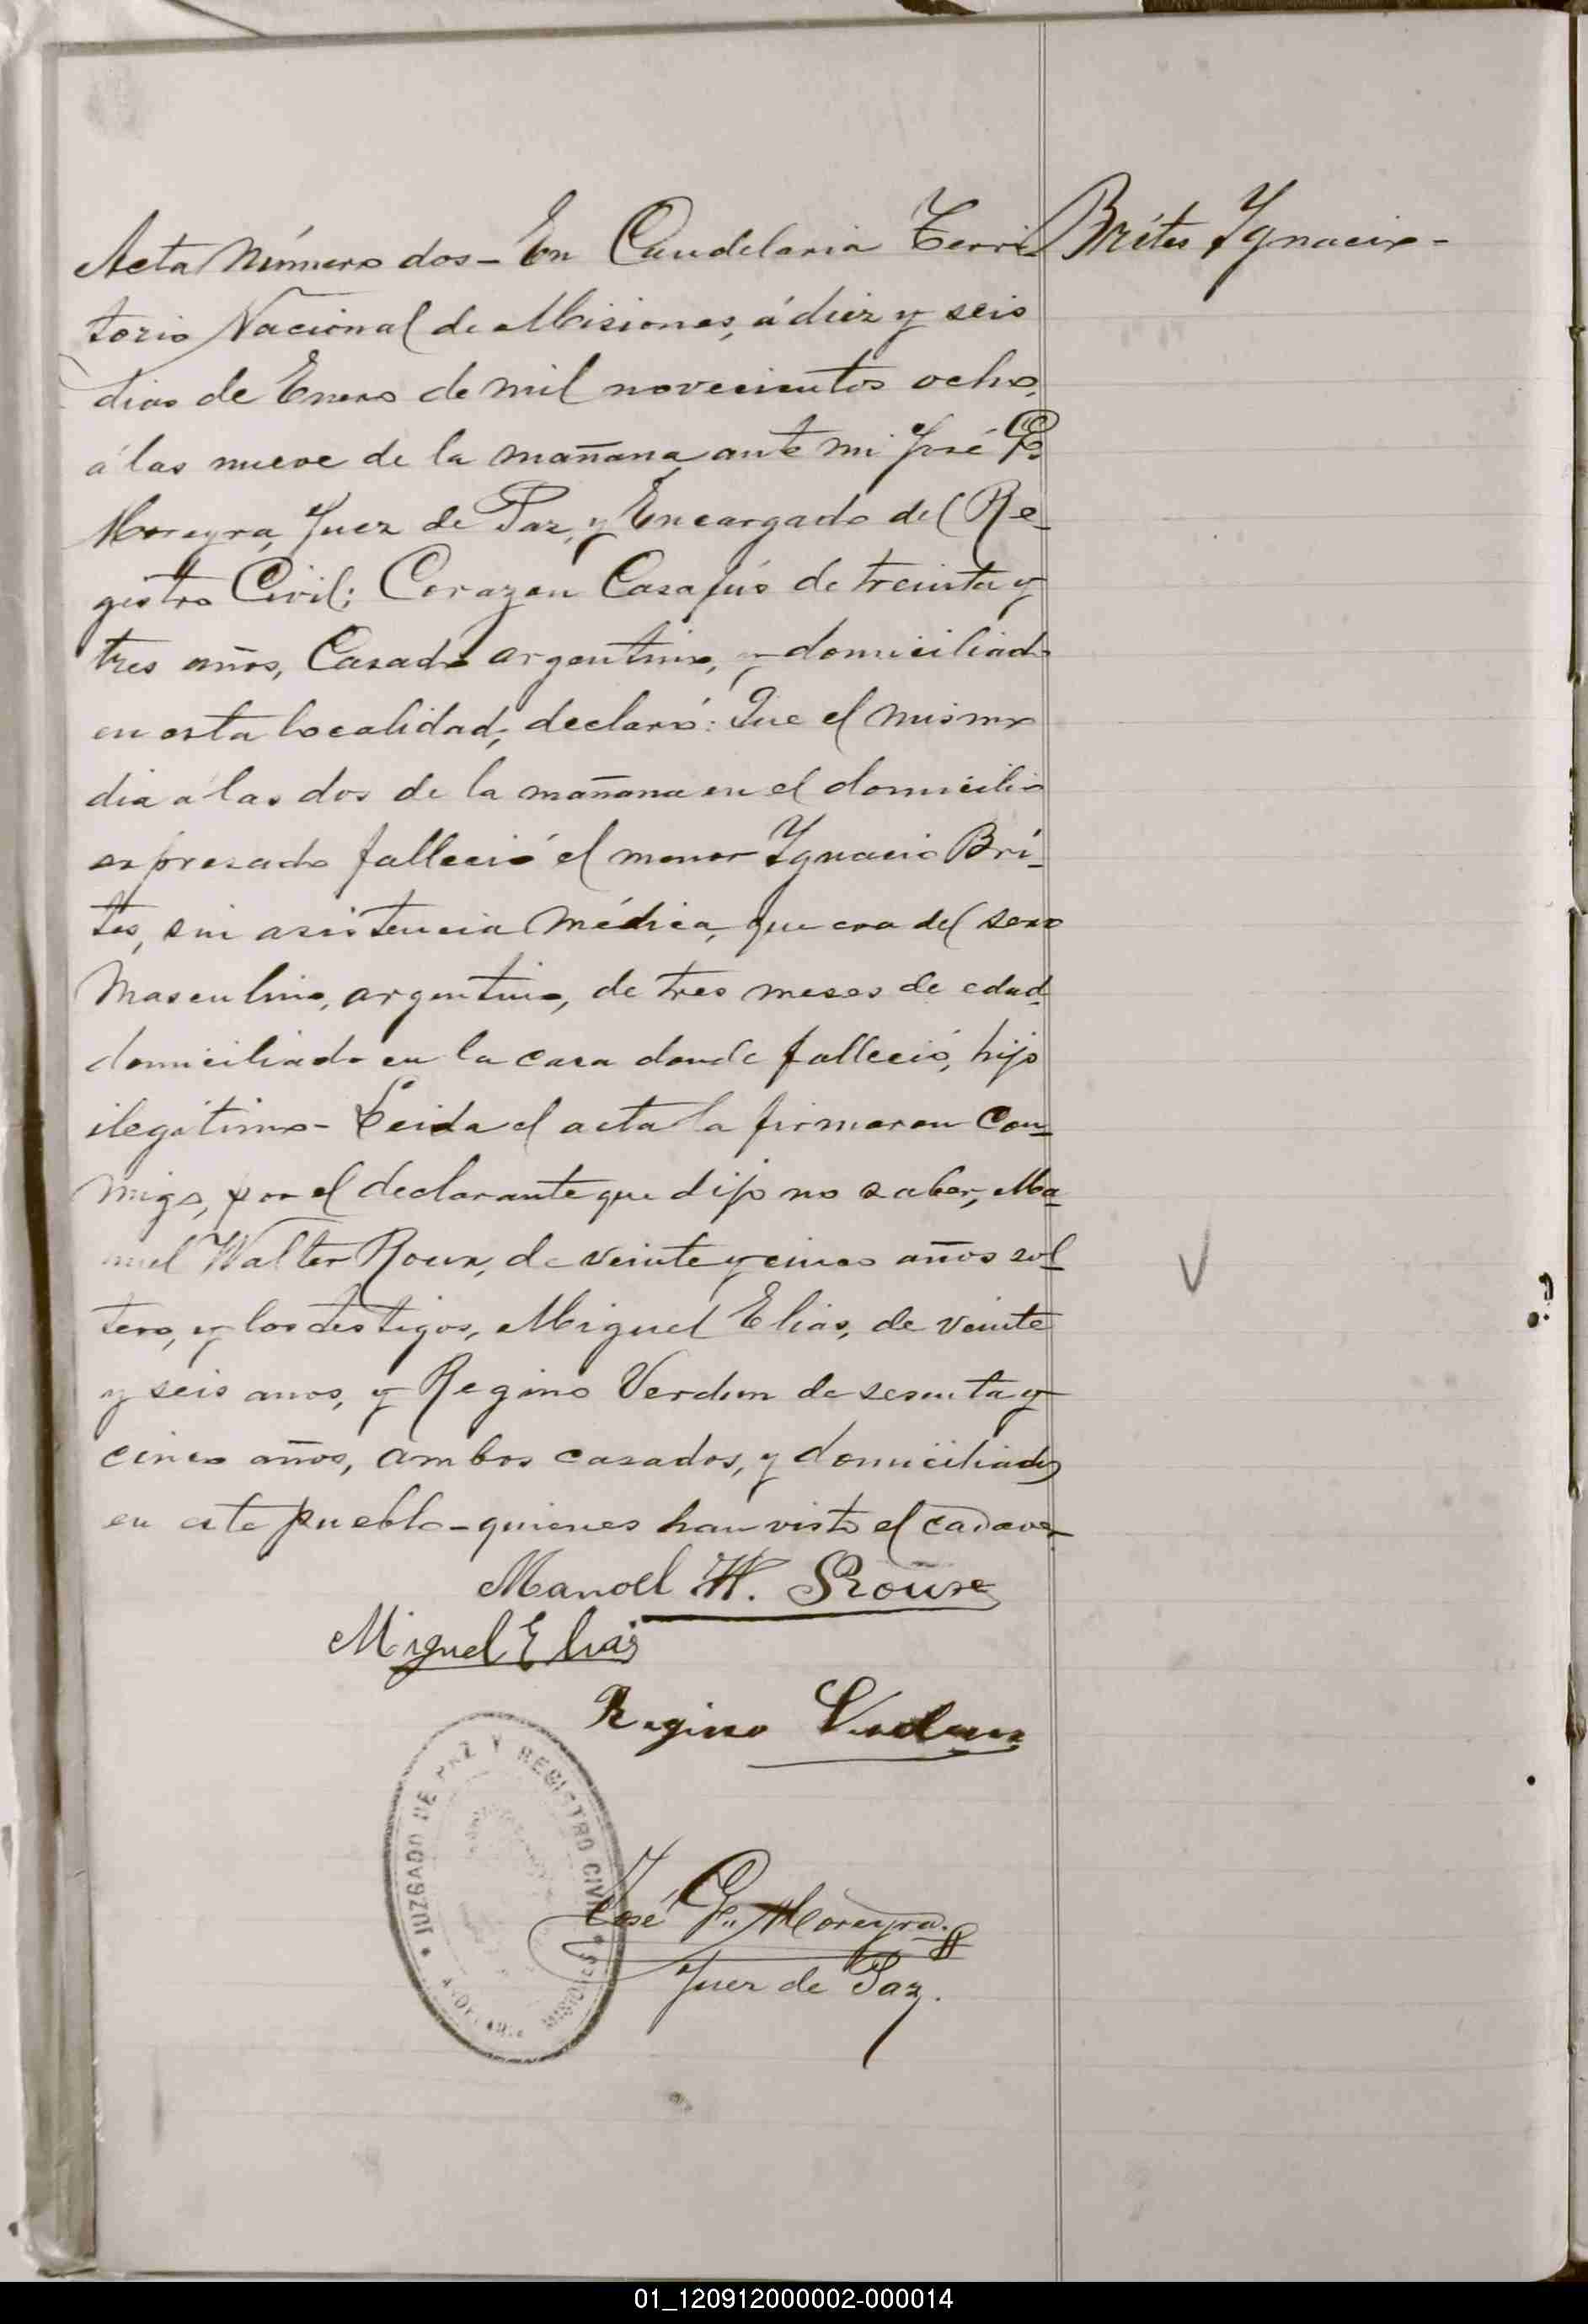 Acta Número dos - En Candelaria Terri
Brites Ygnacio -
torio Nacional de Misiones, á diez y seis
dias de Enero de mil novecientos ocho,
á las nueve de la mañana, ante mi José G.
Moreyra, Juez de Paz, y Encargado del Re-
gistro Civil; Corazon Casafús de treinta y
tres años, Casado argentino, y domiciliado
en esta localidad; declaró: Que el mismo
dia a las dos de la mañana en el domicilio
expresado falleció el menor Ygnacio Bri-
tes, sin asistencia médica, que era del sexo
Masculino, argentino, de tres meses de edad,
domiciliado en la casa donde falleció, hijo
ilegitimo - Leida el acta la firmaron con-
migo, por el declarante que dijo no saber, Ma-
nuel Walter Roux, de veinte y cinco años sol-
tero, y los testigos, Miguel Elias, de veinte
y seis anos, y Regino Verdun de sesenta y
cinco años, ambos casados, y domiciliados
en este pueblo - quienes han visto el cadaver
Manoel W. Roux
Miguel Elias
Regino Verdun
JUZGADO DE PAZ Y REGISTRO CIVIL
MISIONES
José G. Moreyra.
Juez de Paz.
01_120912000002-000014